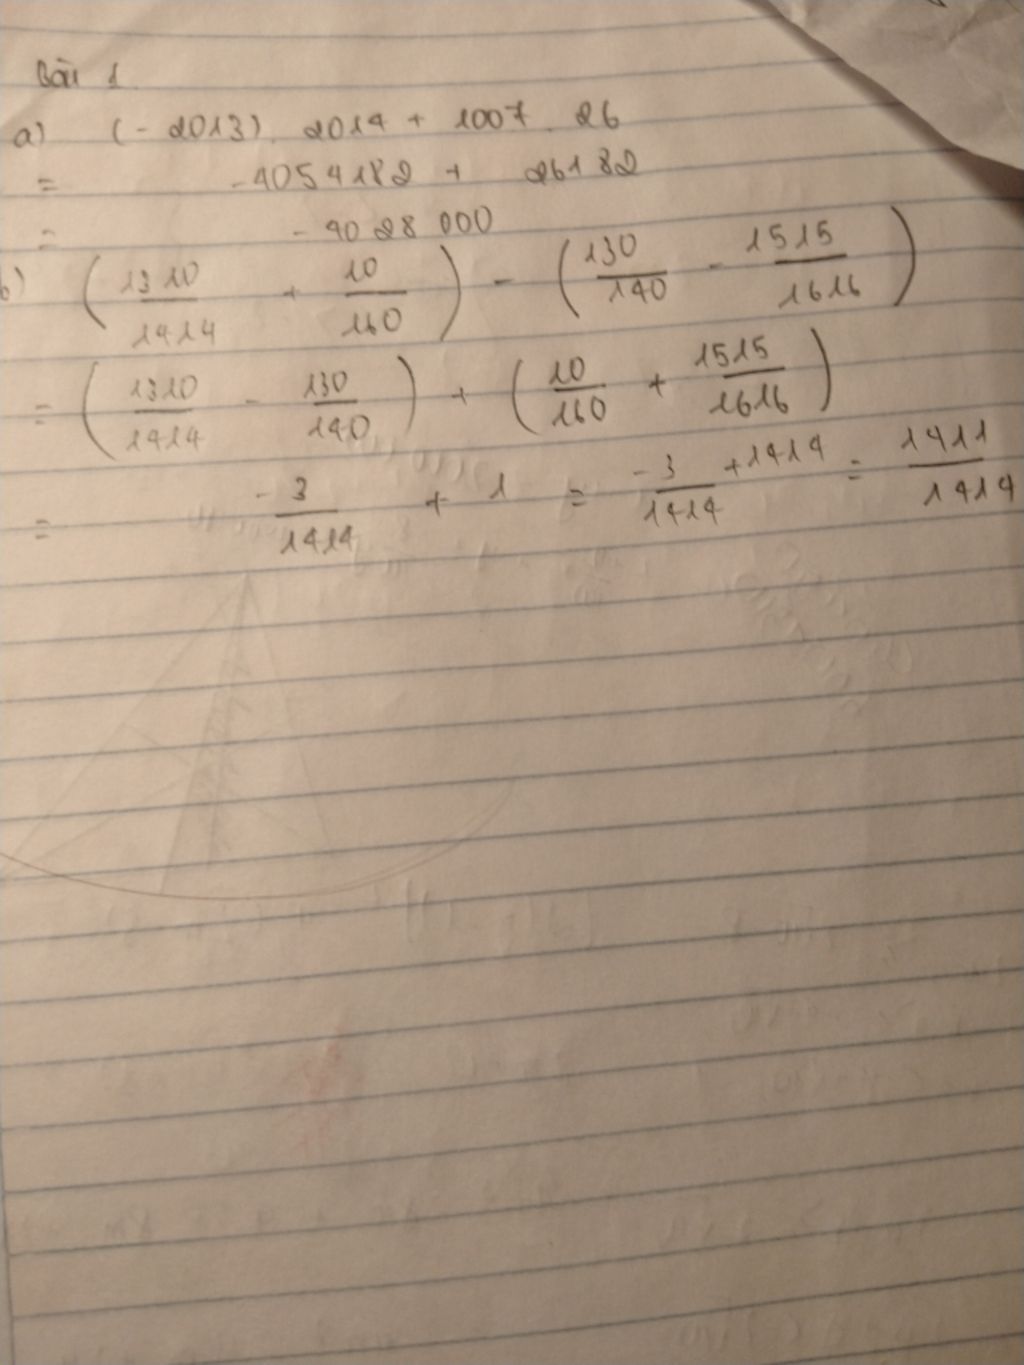 Bài 1
a) (-2013). 2014 + 1007. 26
= -4054182 + 26182
= -4028 000
b) (1310/1414 + 10/160) - (130/140 - 1515/1616)
= (1310/1414 - 130/140) + (10/160 + 1515/1616)
= -3/1414 + 1 = -3/1414 +1414 = 1411/1414